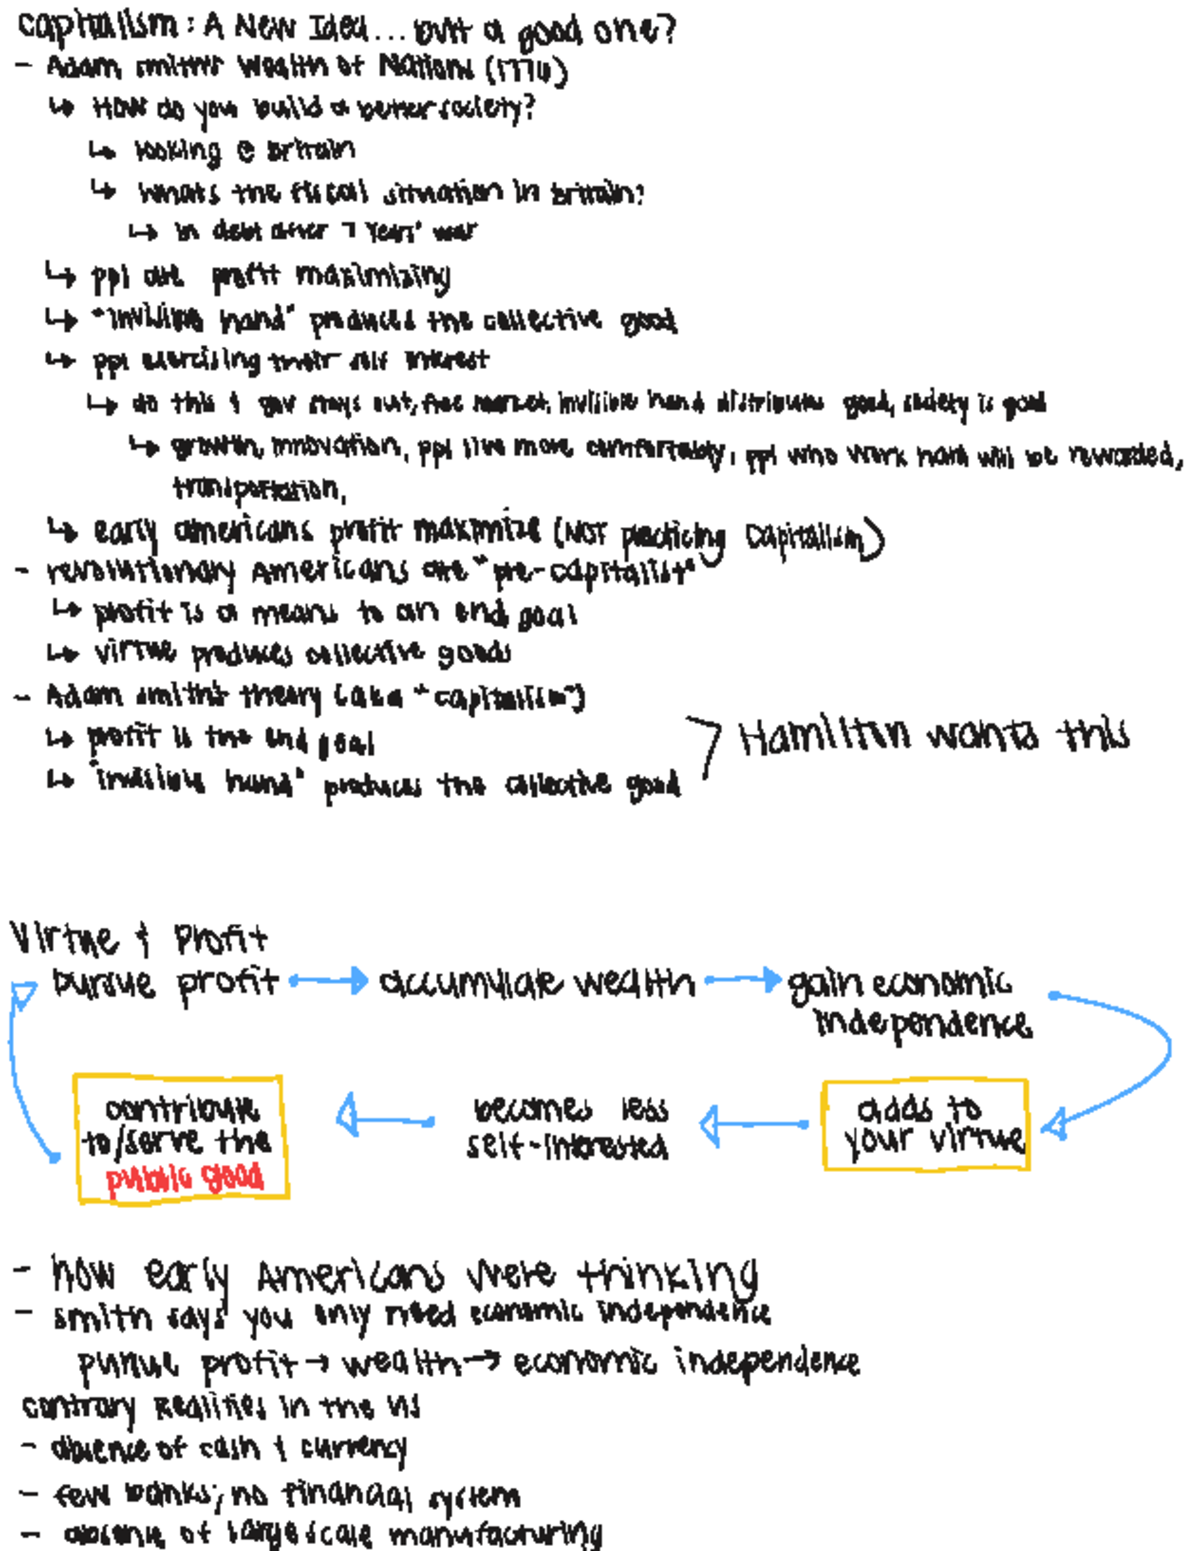 Capitalism: A New Idea... but a good one?
- Adam Smith's Wealth of Nations (1776)
↳ How do you build a better society?
↳ looking @ britain
↳ whats the fiscal situation in britain?
↳ in debt after 7 Years' war
↳ ppl are profit maximizing
↳ "invisible hand" produces the collective good
↳ ppl exercising their self interest
↳ do this & gov stays out, free market, invisible hand distributes good, society is good
↳ growth, innovation, ppl live more comfortably, ppl who work hard will be rewarded,
transportation,
↳ early americans profit maximize (NOT practicing capitalism)
- revolutionary Americans are "pre-capitalist"
↳ profit is a means to an end goal
↳ virtue produces collective goods
- Adam smith's theory (aka "capitalism")
↳ profit is the end goal
↳ "invisible hand" produces the collective good
Hamilton wants this
Virtue & Profit
pursue profit → accumulate wealth → gain economic
independence
adds to
your virtue
becomes less
self-interested
contribute
to/serve the
public good
- how early Americans were thinking
- smith says you only need economic independence
pursue profit → wealth → economic independence
contrary Realities in the US
- absence of cash & currency
- few banks; no financial system
- absence of large scale manufacturing